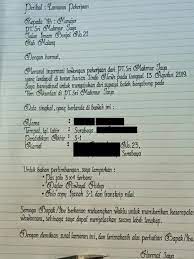 Perihal : Lamaran Pekerjaan
Kepada Yth : Manajer
PT. Sri Makmur Jaya
Jalan No.21
Kab. Malang
Dengan hormat,
Menurut informasi lowongan pekerjaan dari PT. Sri Makmur Jaya
yang di pada tanggal 13 Agustus 2019.
Saya untuk bergabung pada
PT. Sri Makmur Jaya
Data singkat, yang berbeda di bawah ini :
Nama :
Tempat, tgl lahir : Surabaya
Pendidikan : S-1
Alamat : No.23,
Surabaya
Untuk bahan pertimbangan, saya lampirkan :
• Pas foto 3x4 terbaru
• Daftar Riwayat Hidup
• Foto copy Ijazah S-1 dan transkrip nilai.
Semoga Bapak/Ibu berkenan meluangkan waktu untuk memberikan kesempatan
wawancara, sehingga saya dapat menjelaskan secara lebih
Dengan demikian surat lamaran ini, dan terimakasih atas perhatian Bapak/Ibu.
Hormat Saya